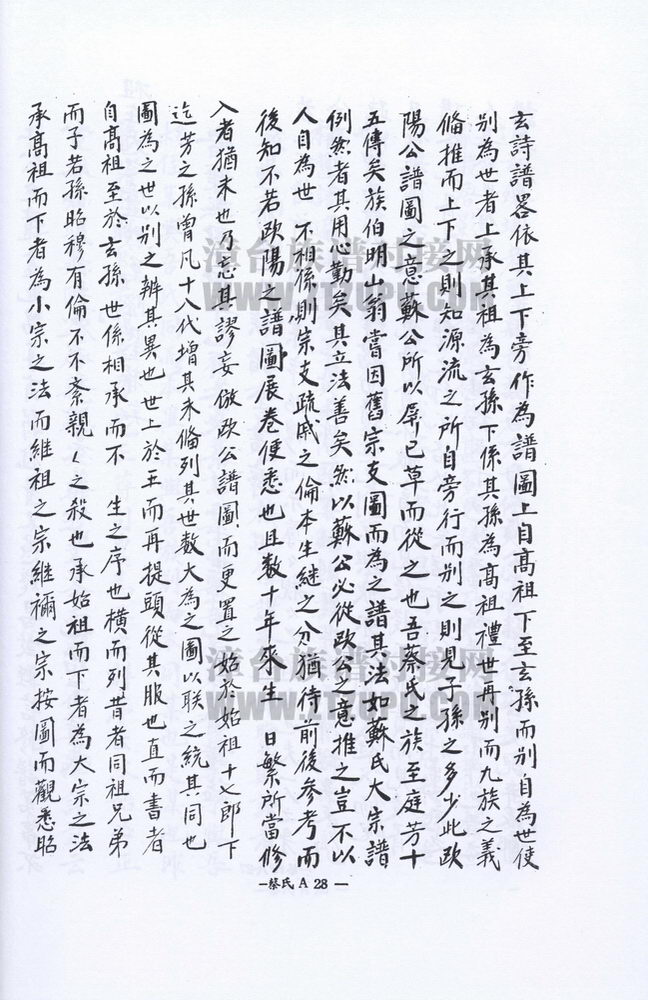 玄詩譜畧依其上下旁作為譜圖上自高祖下至玄孫而別自為世使
別為世者上承其祖為玄孫下係其孫為高祖禮世再別而九族之義
俻推而上下之則知源流之所自旁行而別之則見子孫之多少此欧
陽公譜圖之意蘇公所以屏已草而從之也吾蔡氏之族至庭芳十
五傳矣族伯明山翁嘗因舊宗支圖而為之譜其法如蘇氏大宗譜
例然者其用心勤矣其立法善矣然以蘇公必從欧公之意推之豈不以
人自為世 不相係則宗支疏戚之倫本生継之分猶待前後参考而
後知不若欧陽之譜圖展卷便悉也且数十年來生 日繁所當修
入者猶未也乃忘其謬妄倣欧公譜圖而更置之始於始祖十七郎下
迄芳之孫曾凡十八代增其未俻列其世数大為之圖以联之統其同也
圖為之世以別之辨其異也世上於五而再提頭從其服也直而書者
自高祖至於玄孫世係相承而不 生之序也橫而列昔者同祖兄弟
而子若孫昭穆有倫不不紊親く之殺也承始祖而下者為大宗之法
承高祖而下者為小宗之法而継祖之宗継禰之宗按圖而觀悉昭
—蔡氏 A 28 —
漳台族谱对接网
WWW.ZTZUPU.COM
漳台族谱对接网
WWW.ZTZUPU.COM